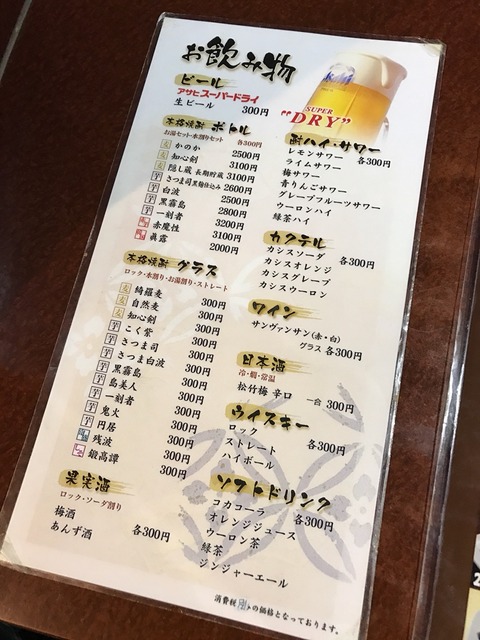 お飲み物
ビール
アサヒスーパードライ
生ビール 300円
Asahi
SUPER
"DRY"
本格焼酎 ボトル
お湯セット・水割りセット 各300円
麦 かのか 2500円
麦 知心剣 3100円
麦 隠し蔵 長期貯蔵 3100円
芋 さつま司 黒麹仕込み 2600円
芋 白波 2500円
芋 黒霧島 2800円
芋 一刻者 3200円
赤魔性 3100円
眞露 2000円
本格焼酎 グラス
ロック・水割り・お湯割り・ストレート
麦 綺羅麦 300円
麦 自然麦 300円
麦 知心剣 300円
芋 こく紫 300円
芋 さつま司 300円
芋 さつま白波 300円
芋 黒霧島 300円
芋 島美人 300円
芋 一刻者 300円
芋 鬼火 300円
芋 円居 300円
残波 300円
鍛高譚 300円
果実酒
ロック・ソーダ割り
梅酒
あんず酒
各300円
酎ハイ・サワー
レモンサワー 各300円
ライムサワー
梅サワー
青りんごサワー
グレープフルーツサワー
ウーロンハイ
緑茶ハイ
カクテル
カシスソーダ 各300円
カシスオレンジ
カシスグレープ
カシスウーロン
ワイン
サンヴァンサン(赤・白)
グラス 各300円
日本酒
冷・燗・常温
松竹梅 辛口 一合 300円
ウイスキー
ロック 各300円
ストレート
ハイボール
ソフトドリンク
コカコーラ 各300円
オレンジジュース
ウーロン茶
緑茶
ジンジャーエール
消費税 の価格となっております。